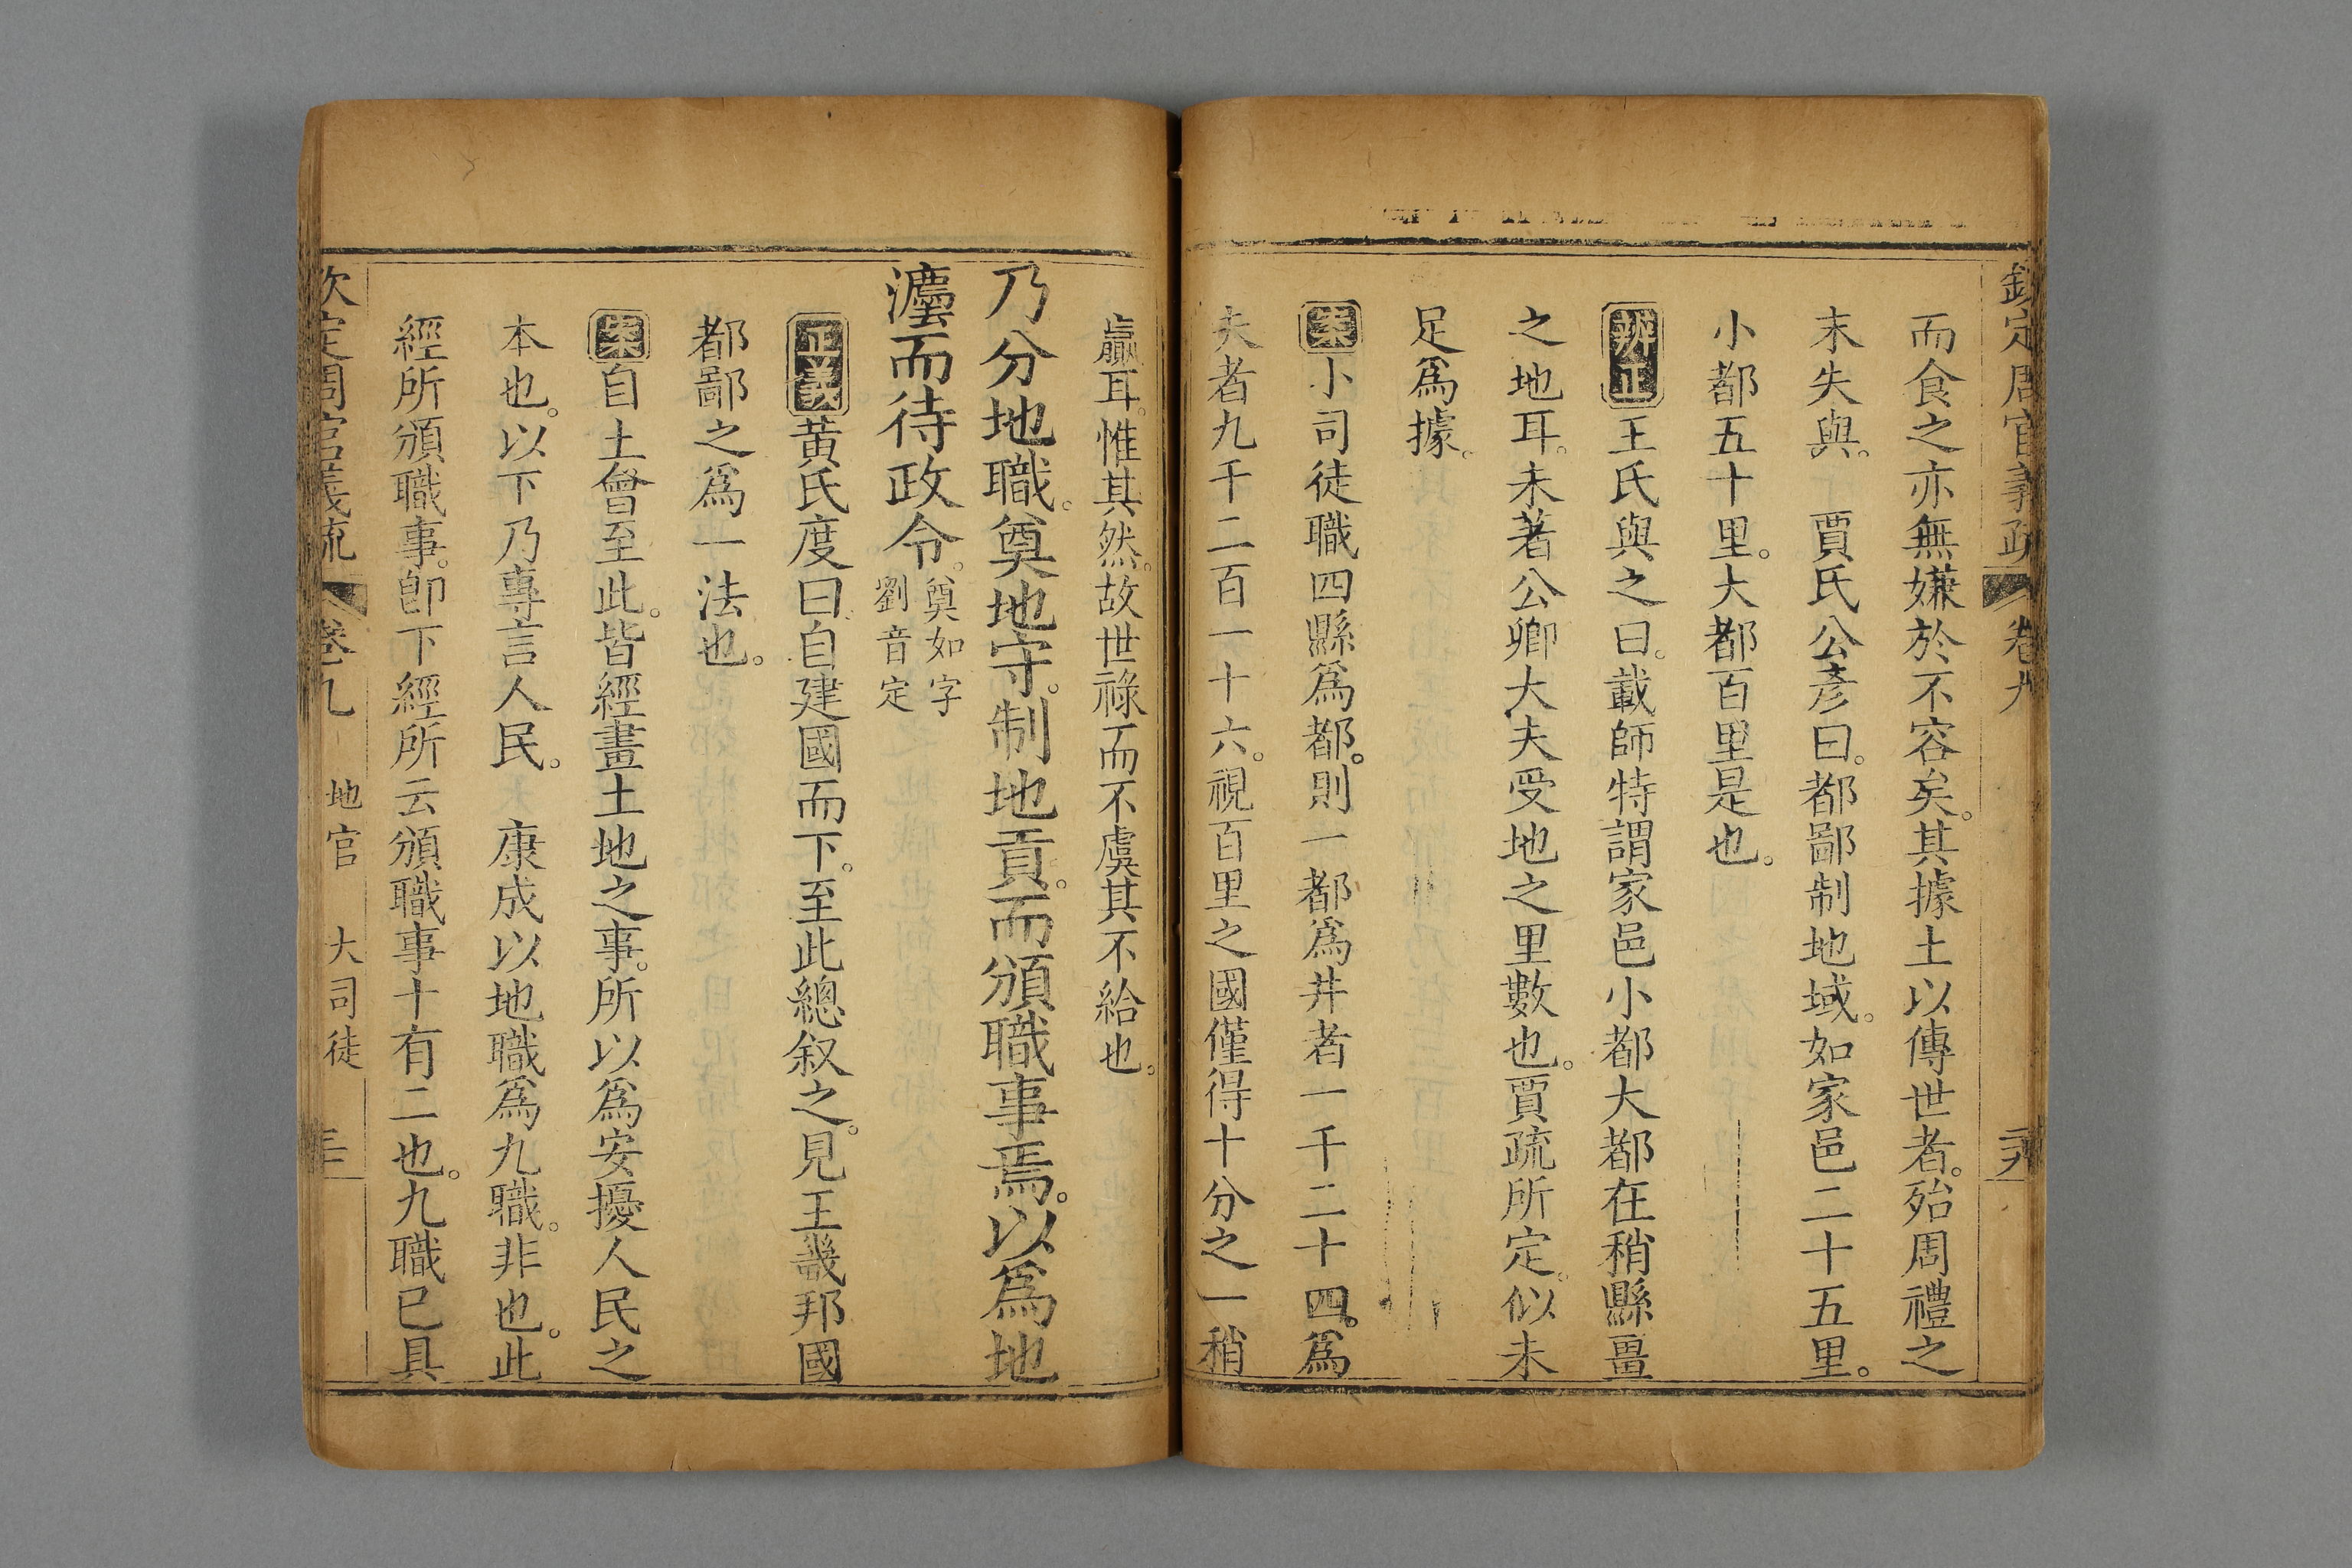 欽定周官義疏 卷九 二九
而食之亦無嫌於不容矣。其據土以傳世者。殆周禮之
末失與。 賈氏公彥曰。都鄙制地域。如家邑二十五里。
小都五十里。大都百里是也。
辨正王氏與之曰。載師特謂家邑小都大都在稍縣畺
之地耳。未著公卿大夫受地之里數也。賈疏所定。似未
足爲據。
案小司徒職四縣爲都。則一都爲井者一千二十四。爲
夫者九千二百一十六。視百里之國僅得十分之一稍
贏耳。惟其然。故世祿而不虞其不給也。
乃分地職。奠地守。制地貢。而頒職事焉。以爲地
灋而待政令。奠如字
劉音定
正義黃氏度曰。自建國而下。至此總叙之。見王畿邦國
都鄙之爲一法也。
案自土會至此。皆經畫土地之事。所以爲安擾人民之
本也。以下乃專言人民。 康成以地職爲九職。非也。此
經所頒職事。卽下經所云頒職事十有二也。九職已具
欽定周官義疏 卷九 地官 大司徒 三十